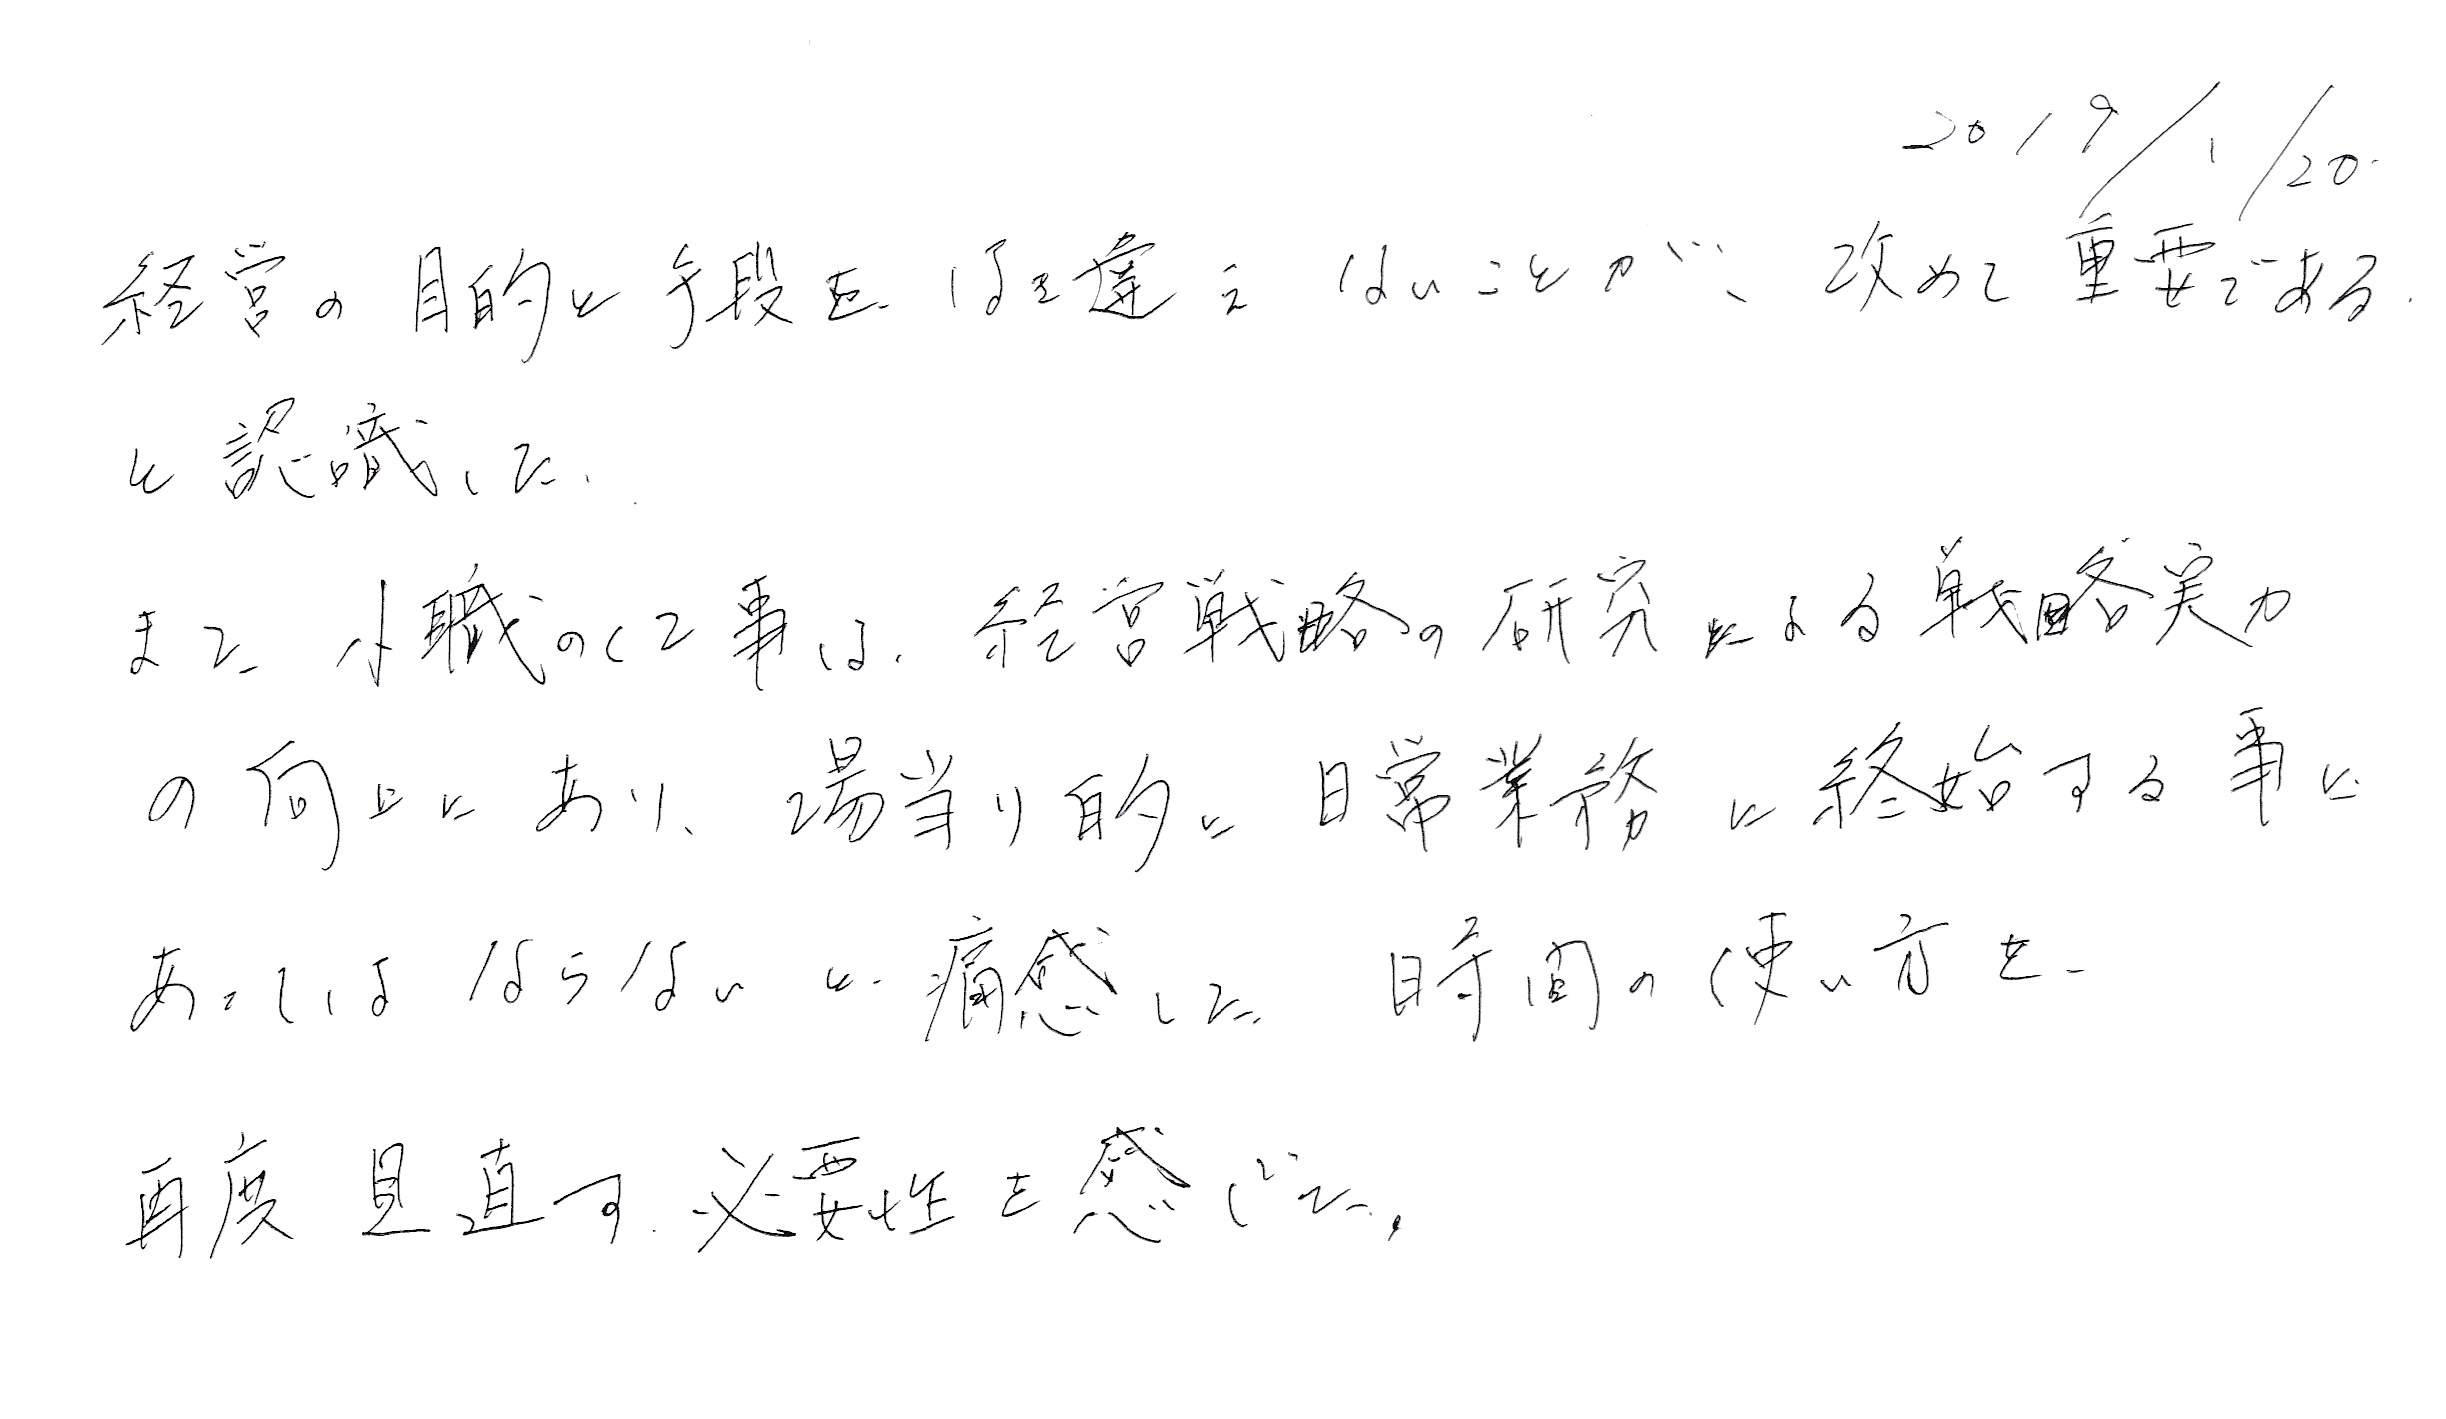 2019/1/20
経営の目的と手段を、はき違えないことが、改めて重要である
と認識した。
また、小職の仕事は、経営戦略の研究による戦略実力
の向上にあり、場当り的に日常業務に終始する事に
あってはならないと痛感した。時間の使い方を
再度見直す必要性を感じた。